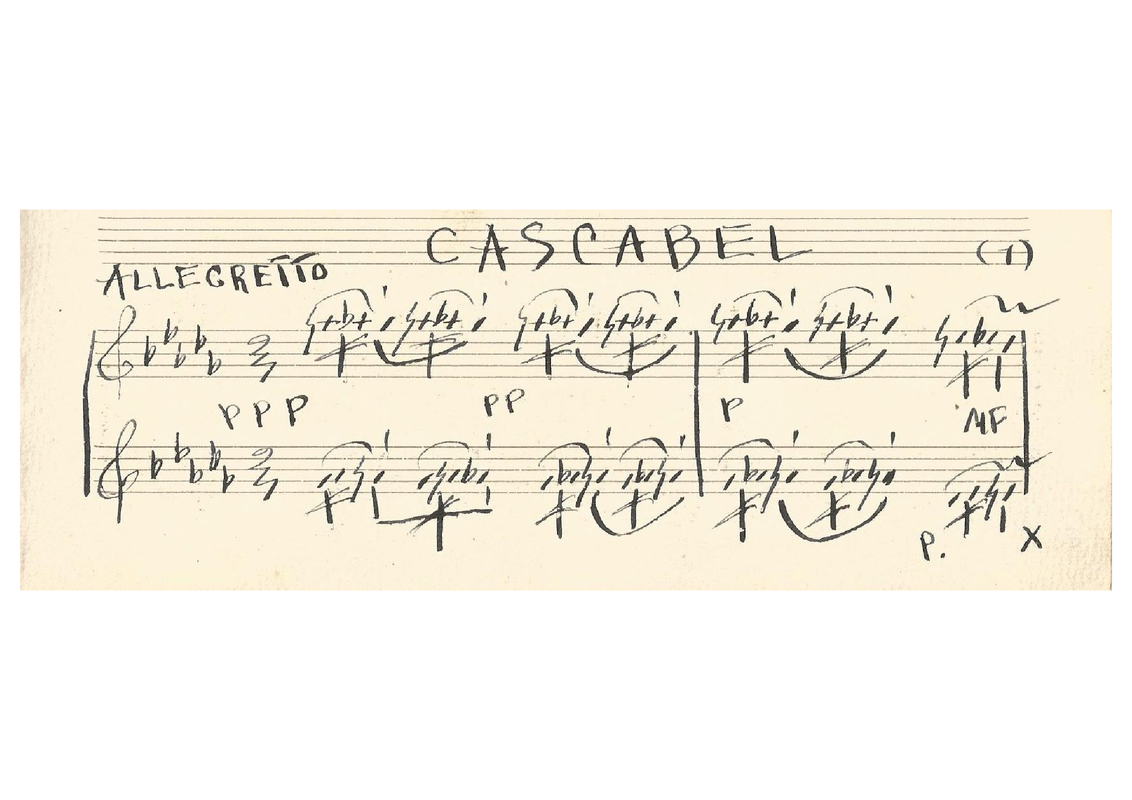 CASCABEL (1)
ALLEGRETTO
PPP PP P MF
P. X